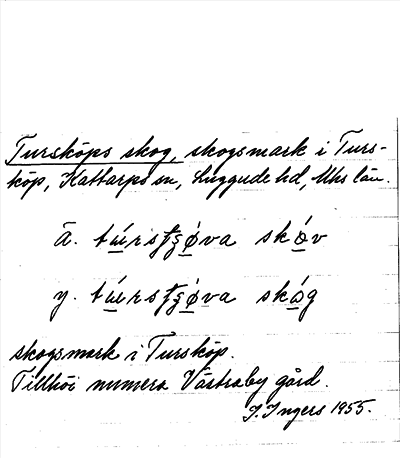 Tursköps skog, skogsmark i Turs-
köp, Kattarps sn, Luggude hd, Mhs län.
ä. tú̲rsʄʂǿ̲va skɑ̲́v
y. tú̲rsʄʂǿ̲va skɑ̲́g
skogsmark i Tursköp.
Tillhör numera Västraby gård.
I. Ingers 1955.